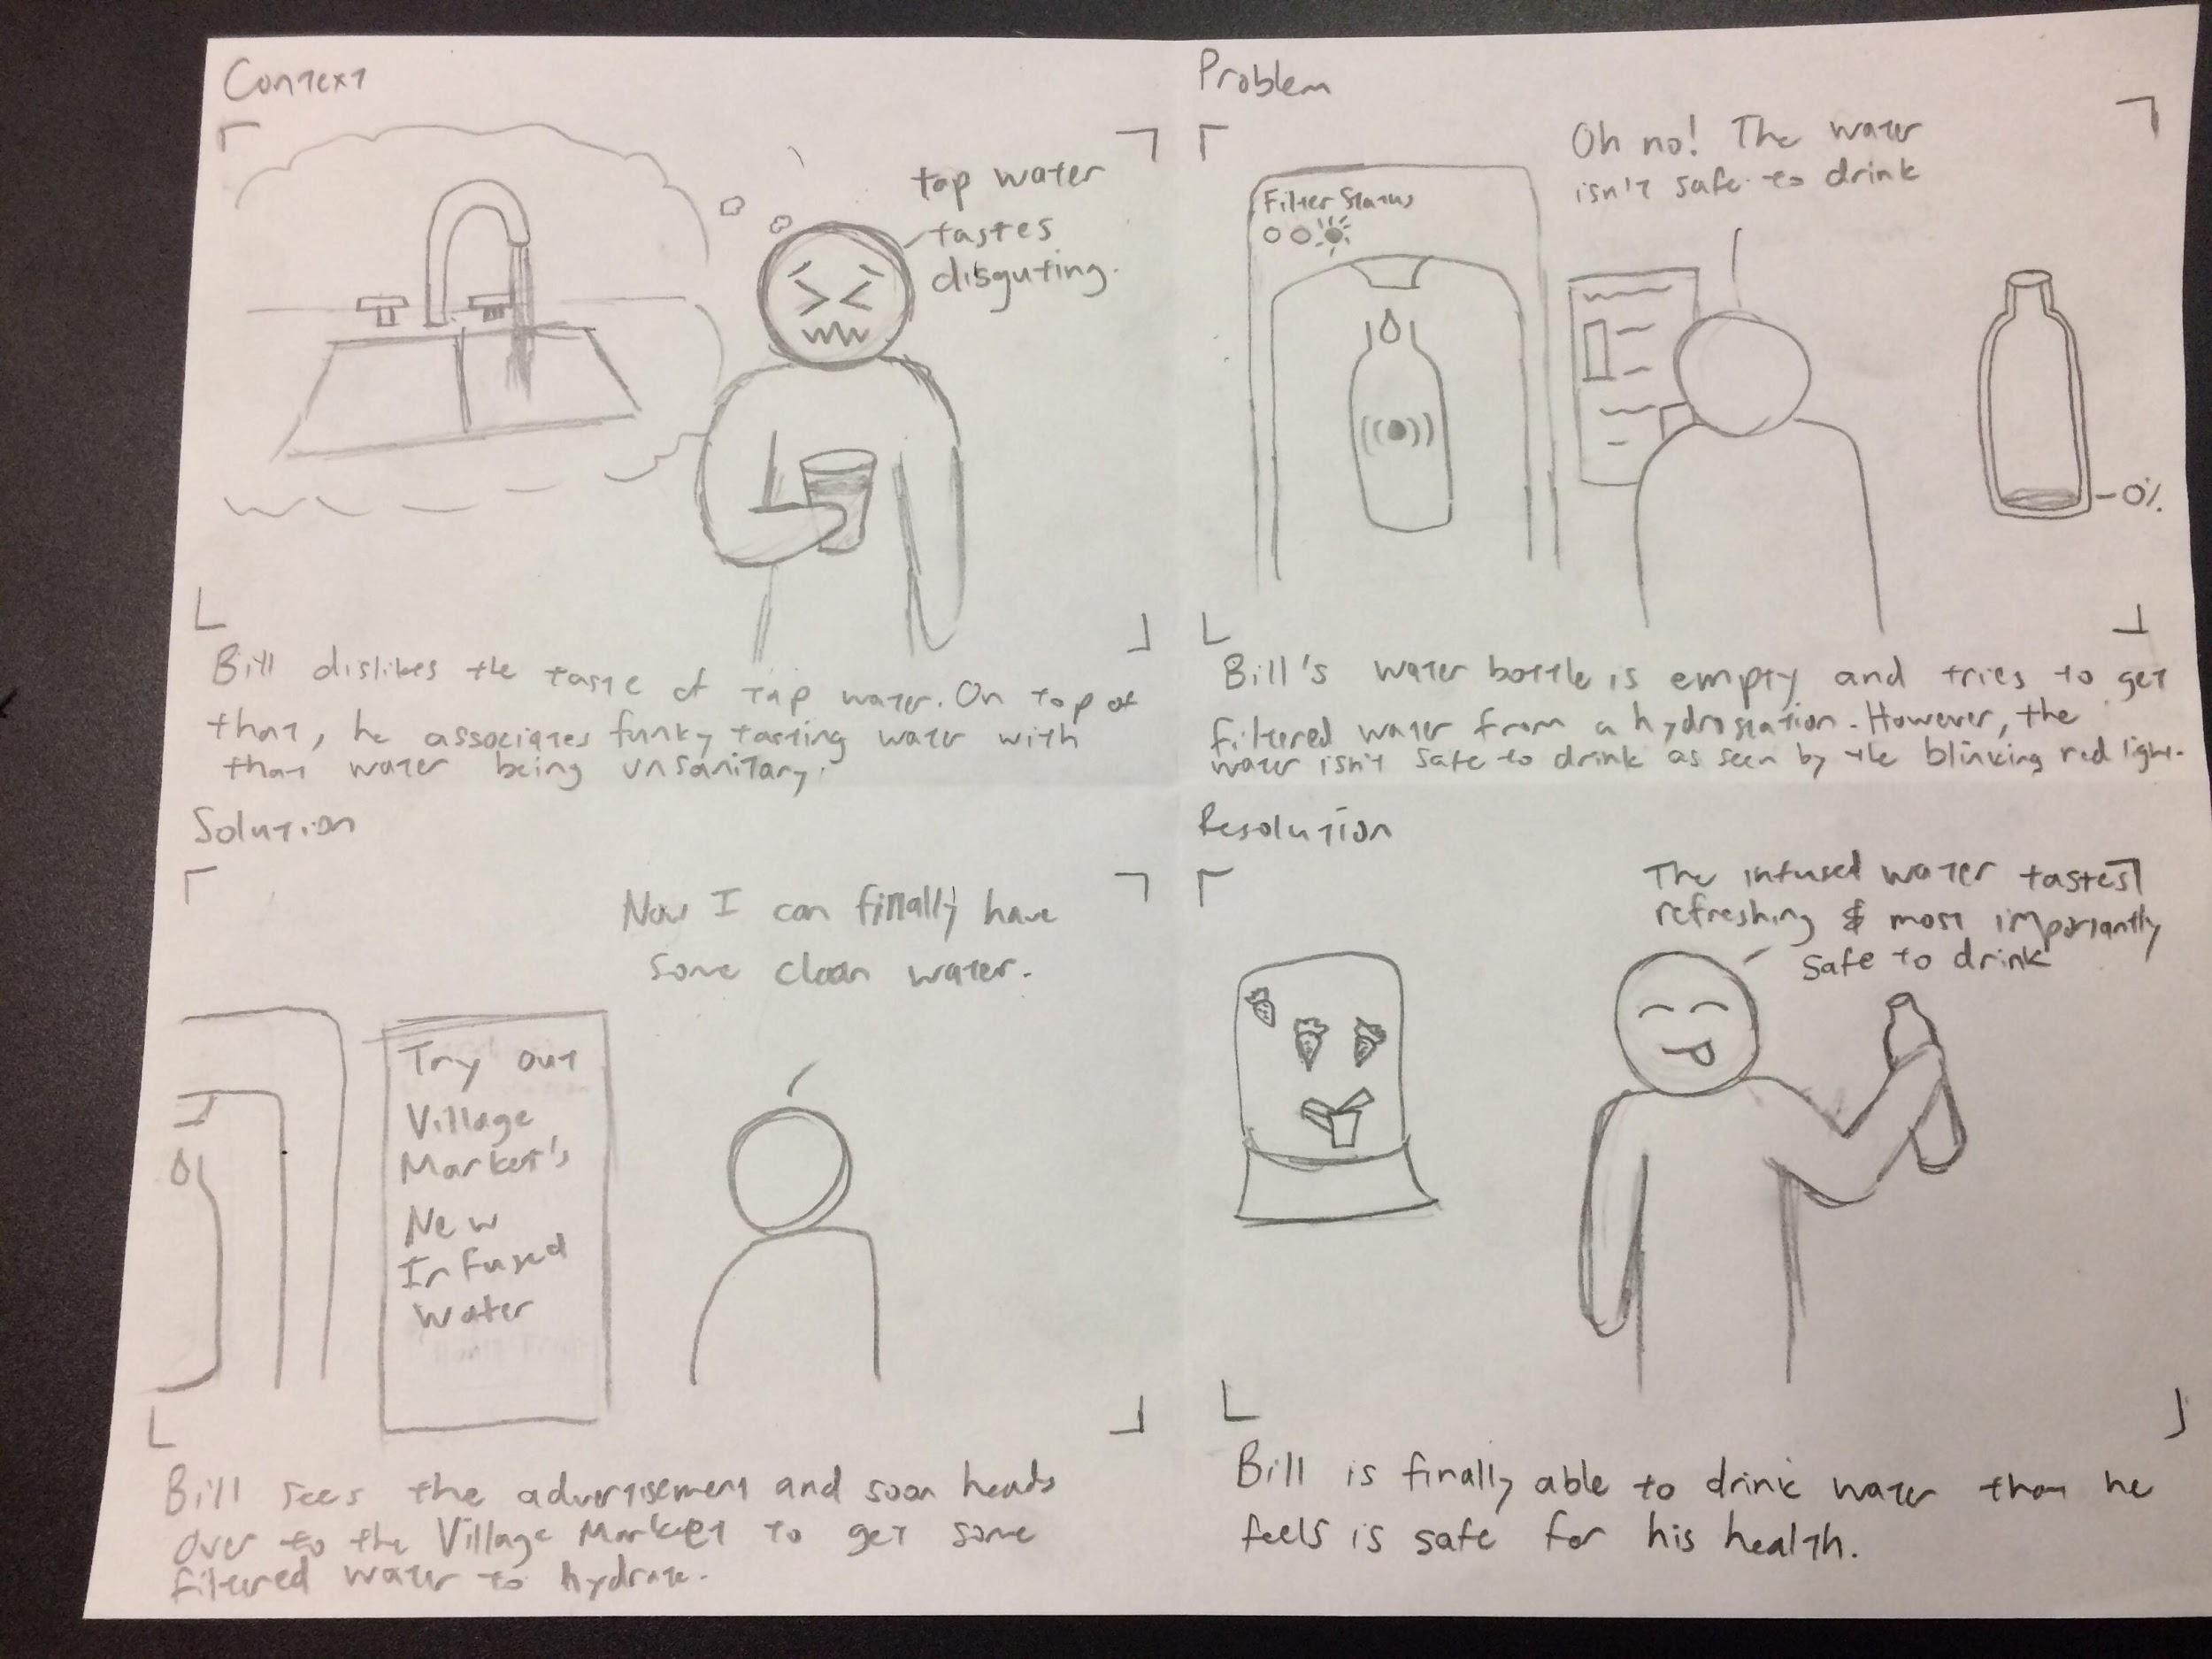 Context
tap water
tastes
disguting.
Bill dislikes the taste of tap water. On top of
that, he associates funky tasting water with
that water being unsanitary.
Problem
Oh no! The water
isn't safe to drink
Filter Status
0%
Bill's water bottle is empty and tries to get
filtered water from a hydrostation. However, the
water isn't safe to drink as seen by the blinking red light.
Solution
Now I can finally have
some clean water.
Try out
Village
Market's
New
Infused
Water
Bill sees the advertisement and soon heads
over to the Village Market to get some
filtered water to hydrate.
Resolution
The infused water tastes
refreshing & most importantly
safe to drink
Bill is finally able to drink water that he
feels is safe for his health.